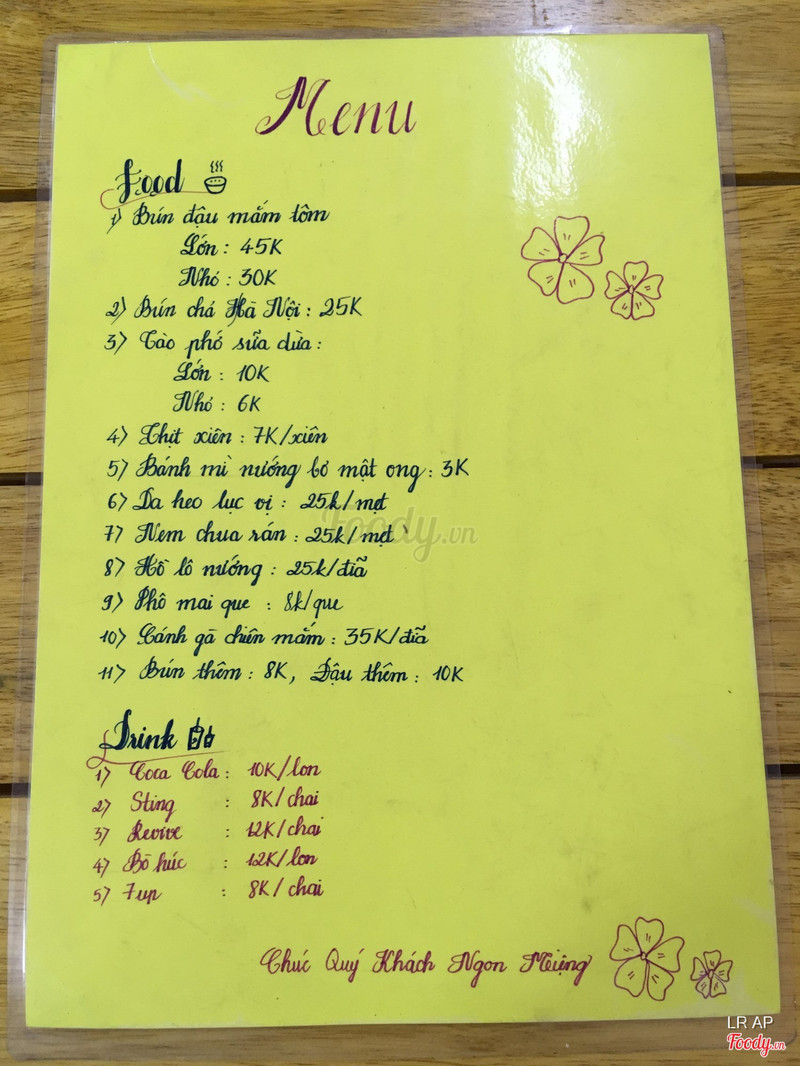 Menu
Food
1) Bún đậu mắm tôm
Lớn : 45K
Nhỏ : 30K
2) Bún chả Hà Nội : 25K
3) Tào phớ sữa dừa :
Lớn : 10K
Nhỏ : 6K
4) Thịt xiên : 7K/xiên
5) Bánh mì nướng bơ mật ong : 3K
6) Da heo lục vị : 25k/mẹt
7) Nem chua rán : 25k/mẹt
Foody.vn
8) Hồ lô nướng : 25k/đĩa
9) Phô mai que : 8k/que
10) Cánh gà chiên mắm : 35K/đĩa
11) Bún thêm : 8K, Đậu thêm : 10K
Drink
1) Coca Cola : 10K/lon
2) Sting : 8K/chai
3) Revive : 12K/chai
4) Bò húc : 12K/lon
5) 7up : 8K/chai
Chúc Quý Khách Ngon Miệng
LR AP
Foody.vn